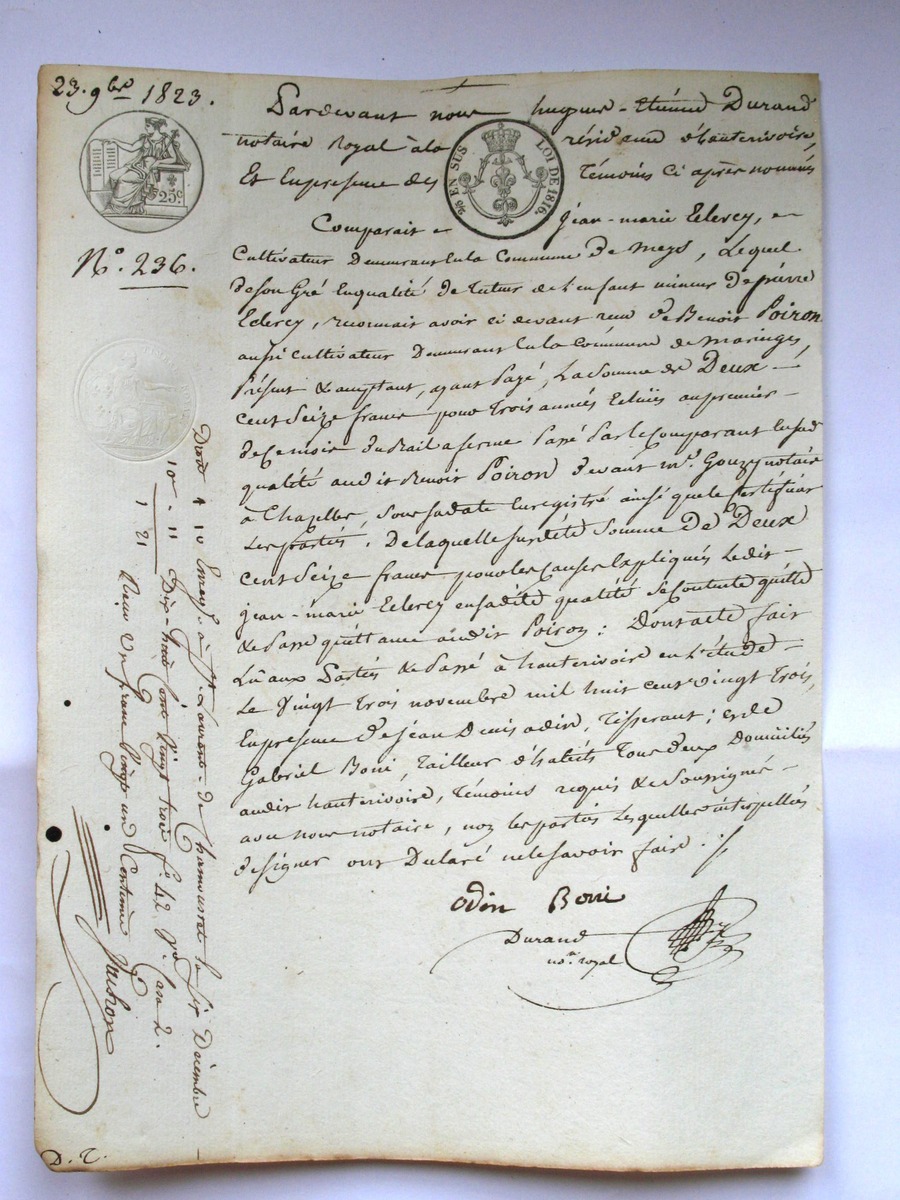 23. 9bre 1823.
Pardevant nous hugues-Etienne Durand
notaire Royal à la résidence d'hauterivoire,
Et En presence des Témoins Ci après nommés
25c
25 EN SUS LOI DE 1816.
Comparait Jean-marie Eclercy,
N°. 236.
Cultivateur Demeurant En la Commune De meys, Lequel
de son Gré En qualité de tuteur de L'enfant mineur De pierre
Eclercy, reconnait avoir ci devant reçu De Benoit Poiron
aussi Cultivateur Demeurant En la Commune de maringes,
Présent & acceptant, ayant Payé, La Somme de Deux
Cent Seize francs pour Trois années Echues au premier
de Ce mois du Bail a ferme Passé Par le Comparant En sad.
qualité audit Benoit Poiron devant me. Gouzy notaire
à Chazelles, Sous sa date Enregistré ainsi que le Certifient
Les parties. De laquelle susdite Somme De Deux
Cent Seize francs pour les Causes Expliquées Ledit
jean-marie Eclercy en sadite qualité Se Contente quitte
& Passe quittance audit Poiron : Dont acte fait
Lu aux Parties & Passé à hauterivoire en L'étude
Le Vingt Trois novembre mil huit cent vingt Trois,
En presence de jean Denis odin, Tisserant ; et de
Gabriel Boni, Tailleur d'habits Tous deux Domiciliés
audit hauterivoire, Témoins requis & Soussignés
avec nous notaire, non les parties Lesquelles interpellées
de signer ont Déclaré ne le savoir faire. ./.
odin Boni
Durand
not. royal
Enreg. à St. Laurent de Chamousset le six Décembre
Dix-huit cent vingt trois fo. 42 Vo. Case 2.
Reçu un franc vingt un Centime
D. T.